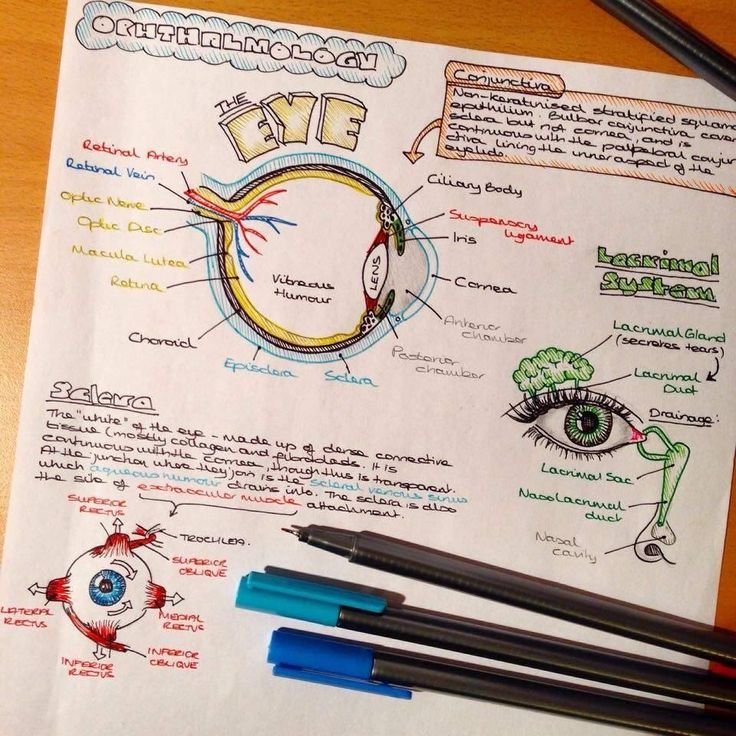 OPHTHALMOLOGY
THE
EYE
Conjunctiva
Non-keratinised stratified squamo
epithilium. Bulbar conjunctiva cover
sclera but not cornea, and is
continuous with the palpebral conjun
ctiva lining the inner aspect of the
eyelids.
Retinal Artery
Retinal Vein
Optic Nerve
Optic Disc
Macula Lutea
Retina
Choroid
Episclera
Sclera
Vitreous
Humour
LENS
Ciliary Body
Suspensory
ligament
Iris
Cornea
Anterior
chamber
Posterior
chamber
Lacrimal
System
Lacrimal Gland
(secretes tears)
Lacrimal
Duct
Drainage:
Lacrimal Sac
Nasolacrimal
duct
Nasal
cavity
Sclera
The "white" of the eye - made up of dense connective
tissue (mostly collagen and fibroblasts). It is
continuous with the cornea, though this is transparent.
At the junction where they join is the scleral venous sinus
which aqueous humour drains into. The sclera is also
the site of extraocular muscle
attachment.
SUPERIOR
RECTUS
TROCHLEA.
SUPERIOR
OBLIQUE
LATERAL
RECTUS
MEDIAL
RECTUS
INFERIOR
RECTUS
INFERIOR
OBLIQUE